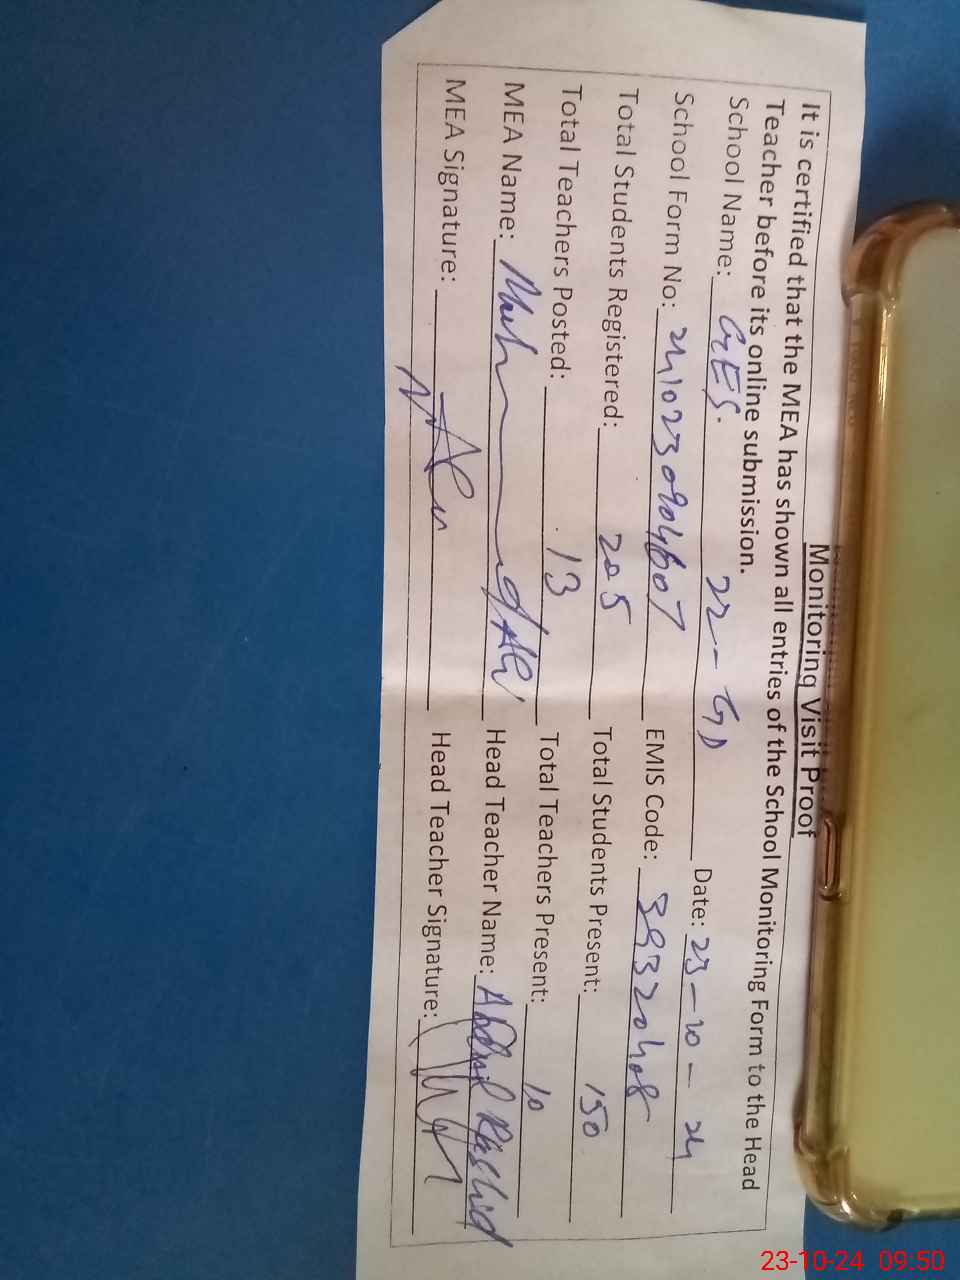 Monitoring Visit Proof
It is certified that the MEA has shown all entries of the School Monitoring Form to the Head
Teacher before its online submission.
School Name: GES. 22-GD Date: 23-10-24
School Form No: 2410230904607 EMIS Code: 39320408
Total Students Registered: 205 Total Students Present: 150
Total Teachers Posted: 13 Total Teachers Present: 10
MEA Name: Head Teacher Name: Abdul Rashid
MEA Signature: Head Teacher Signature:
23-10-24 09:50